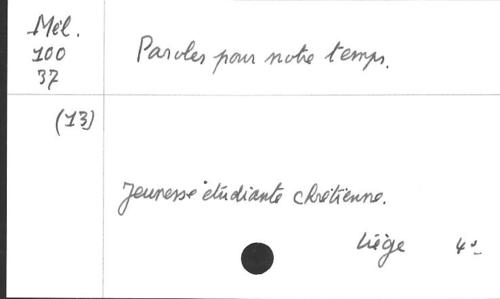 Mél.
100
37
Paroles pour notre temps.
(13)
Jeunesse étudiante chrétienne.
Liège 4°